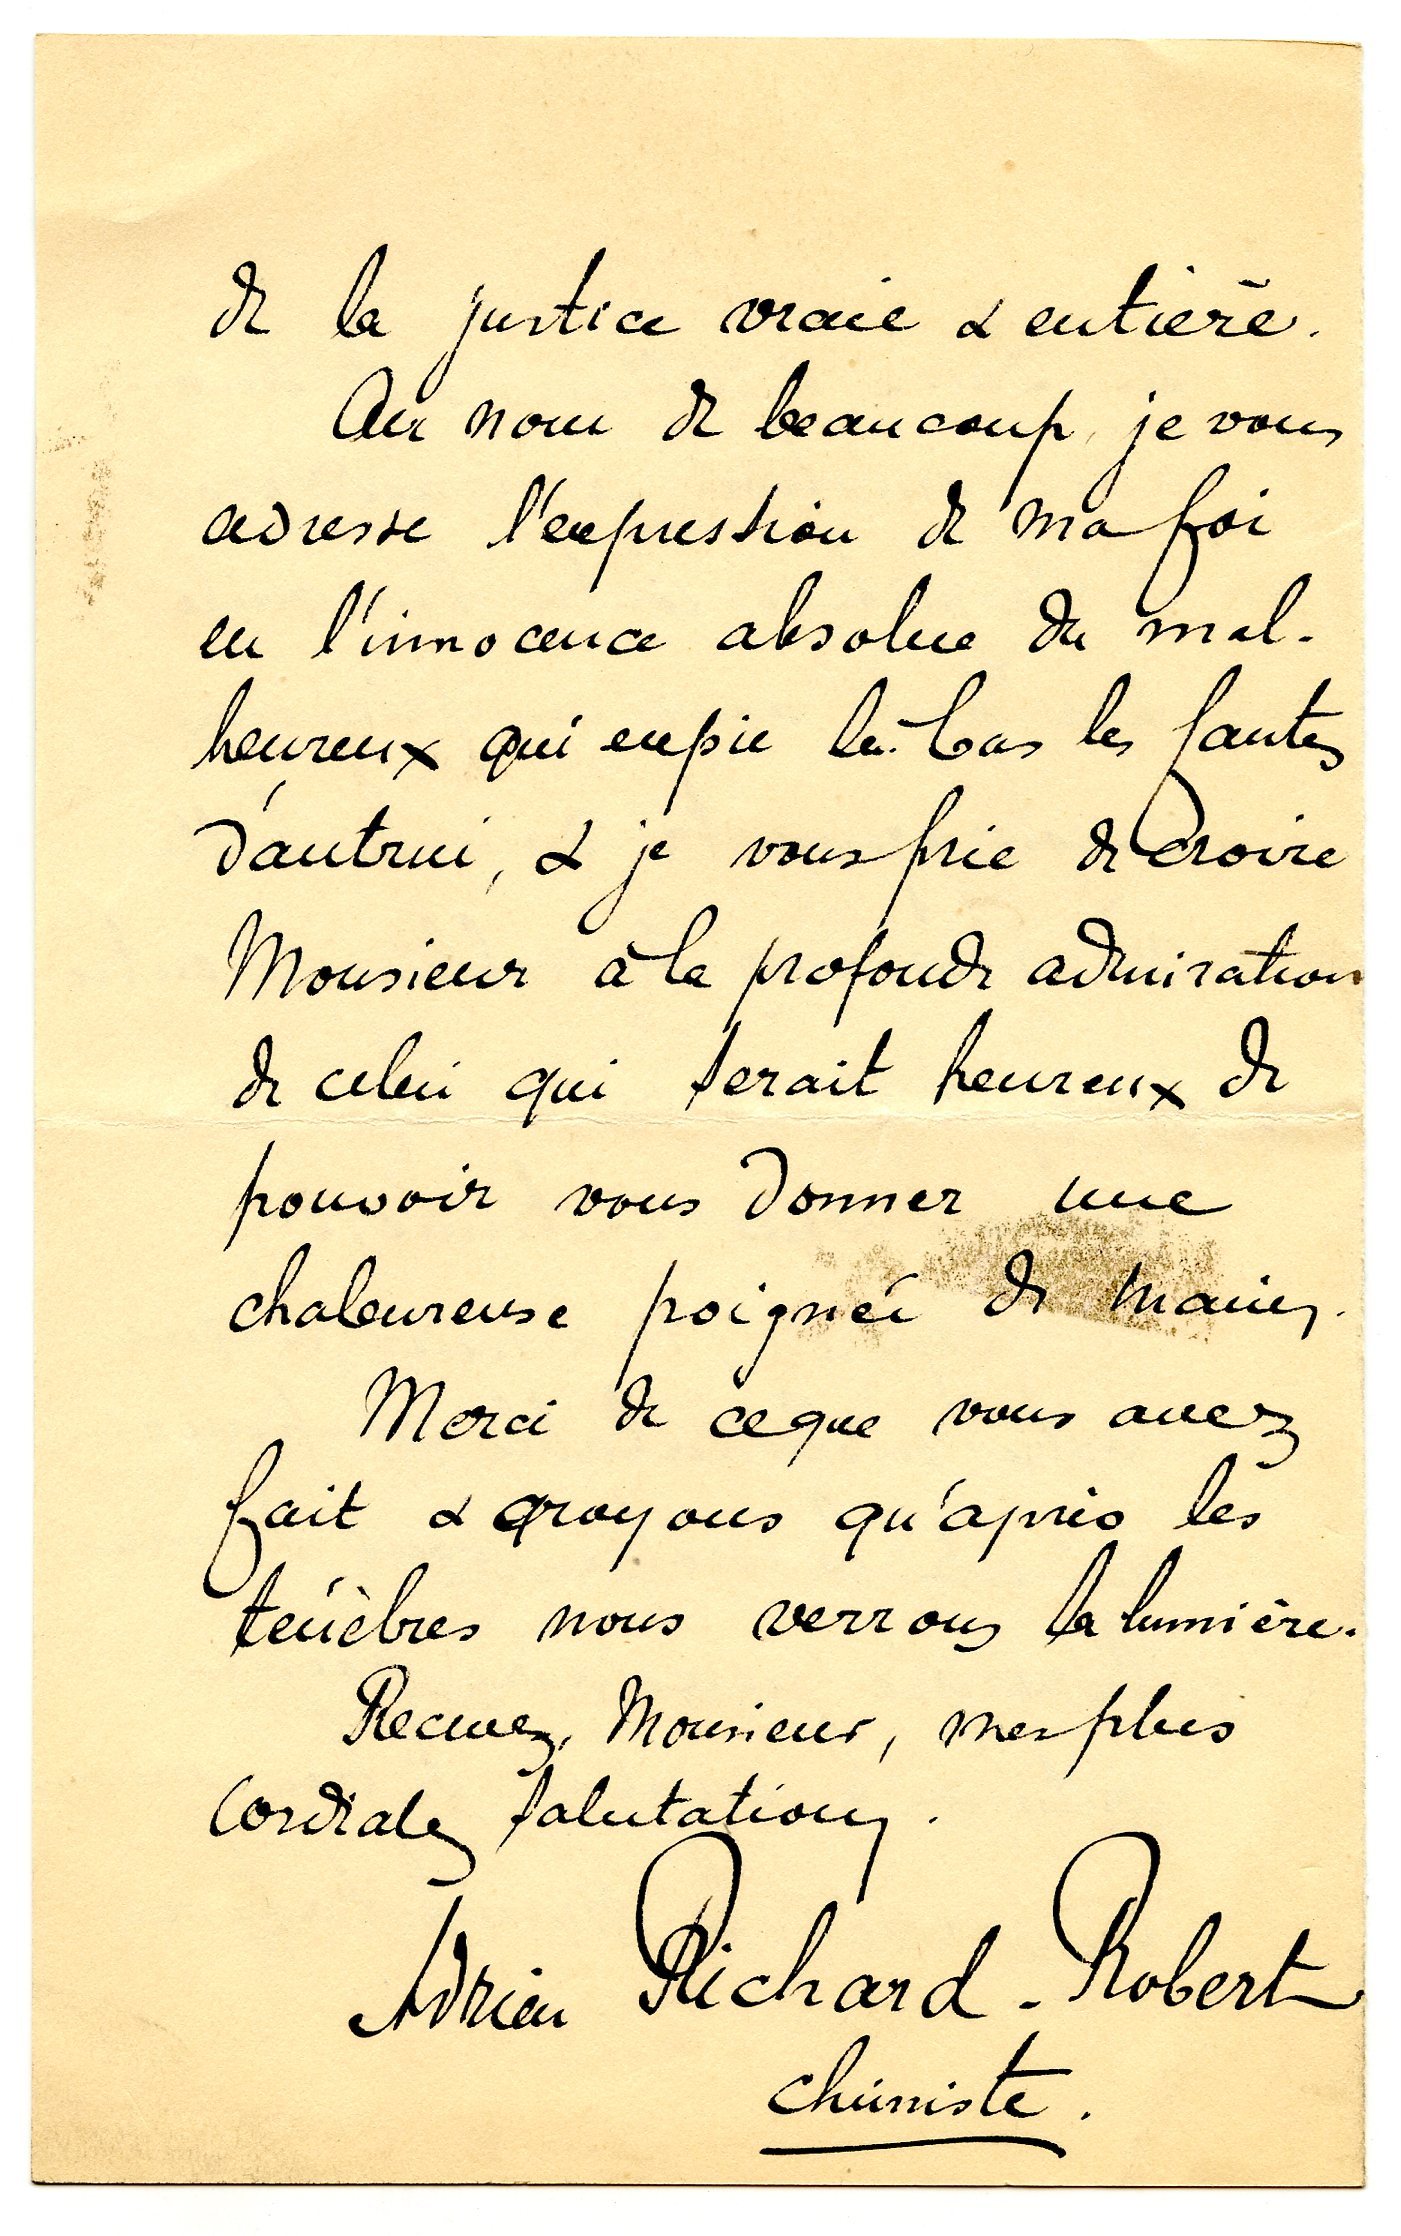 de la justice vraie & entière.
Au nom de beaucoup, je vous
adresse l'expression de ma foi
en l'innocence absolue du mal-
heureux qui expie là-bas les fautes
d'autrui, & je vous prie de croire
Monsieur à la profonde admiration
de celui qui serait heureux de
pouvoir vous donner une
chaleureuse poignée de mains.
Merci de ce que vous avez
fait & croyons qu'après les
ténèbres nous verrons la lumière.
Recevez, Monsieur, mes plus
cordiales salutations.
Adrien Richard-Robert
chimiste.